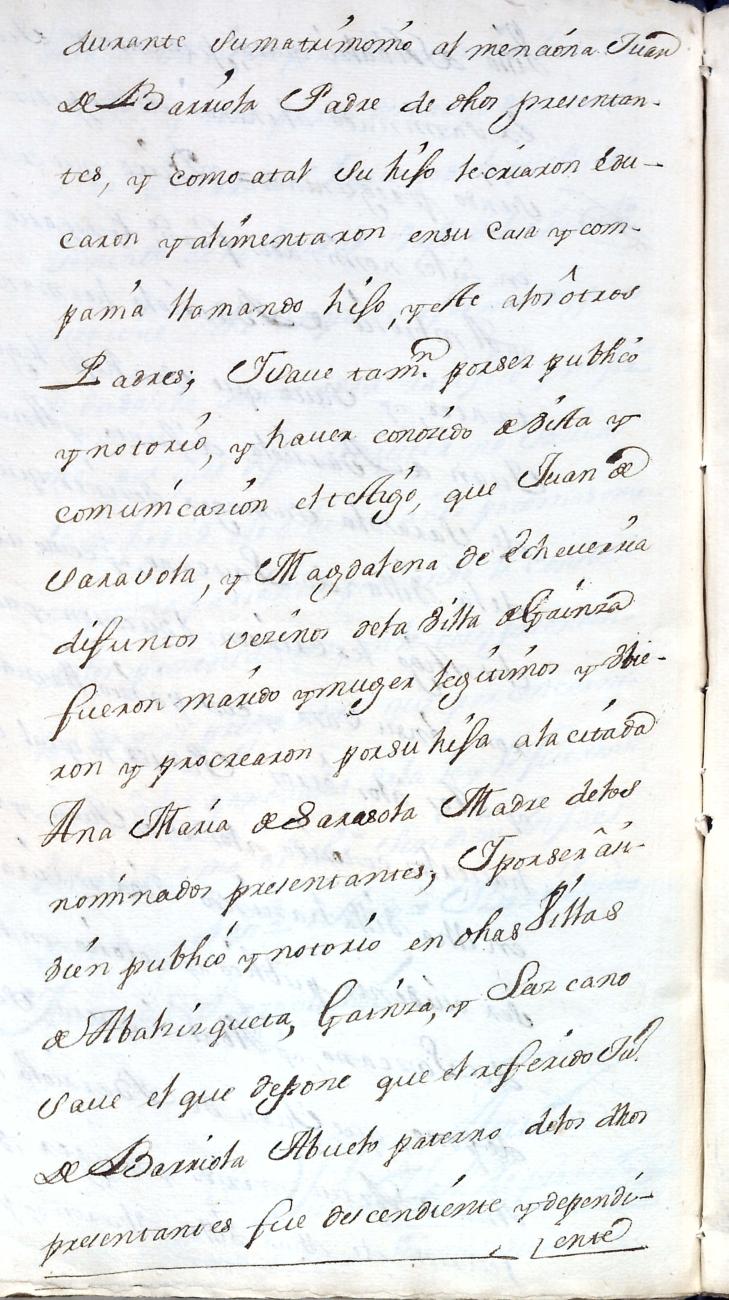 durante sumatrimonio al menciona Juan
de Barriola Padre de dhos presentan-
tes, y como atal su hijo lecriaron edu-
caron yalimentaron ensu casa y com-
pania llamando hijo, yeste alos ôtros
Padres; Isave tamn. porser publico
ynotorio, y haver conozido de Vista y
comunicazion eltestigo, que Juan de
Sarasola, y Magdalena de Echeverria
difuntos vezinos dela Villa de Gainza
fueron marido ymuger legitimos y hubie-
ron y procrearon porsu hija ala citada
Ana Maria de Sarasola Madre delos
nominados presentantes; Iporser âsi-
vien publico ynotorio en dhas Villas
de Abalzisqueta, Gainza, y Lazcano
save el que depone que el refferido Jun.
de Barriola Abuelo paterno delos dhos
presentantes fue descendiente ydependi-
ente